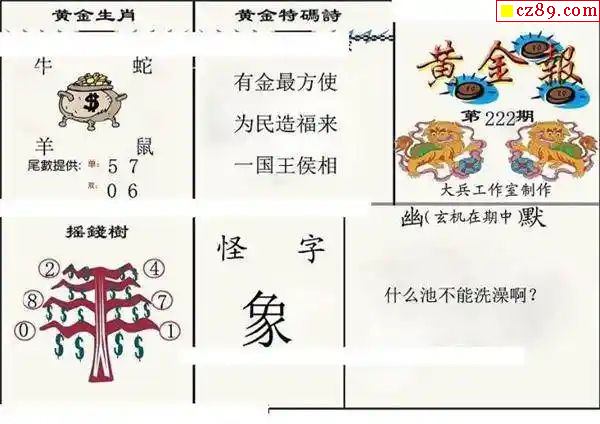 黄金生肖
牛 蛇
$
羊 鼠
尾數提供: 单: 5 7
双: 0 6
黄金特碼詩
有金最方使
为民造福来
一国王侯相
cz89.com
黄金報
第222期
大兵工作室制作
摇錢樹
② ④
⑧ ⑦
⓪ ①
$ $ $ $ $ $
怪 字
象
幽(玄机在期中)默
什么池不能洗澡啊?